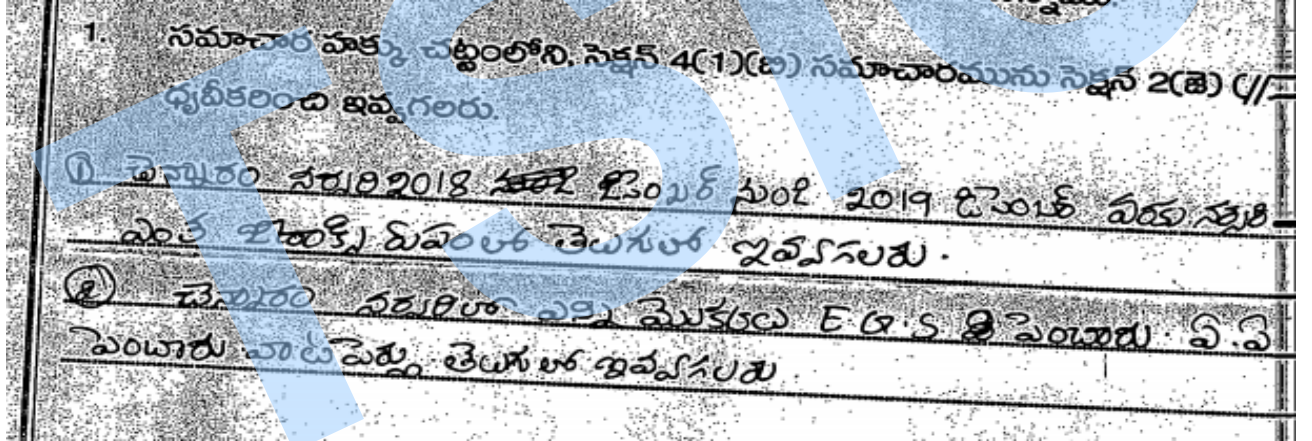 1. సమాచార హక్కు చట్టంలోని, సెక్షన్ 4(1)(బి) సమాచారమును సెక్షన్ 2(జె) (/
ధృవీకరించి ఇవ్వగలరు.
① చెన్నూరం నర్సరి 2018 డిసెంబర్ నుండి 2019 డిసెంబర్ వరకు నర్సరి
ఎంత రుపంలో తెలుగులో ఇవ్వగలరు.
② చెన్నూరం నర్సరిలో ఎన్ని మొక్కలు E G.S పెంచారు. ఏ.ఏ
పెంచారు వాటి పేర్లు తెలుగులో ఇవ్వగలరు.